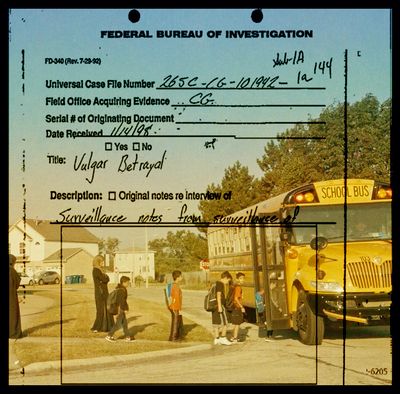 FEDERAL BUREAU OF INVESTIGATION
FD-340 (Rev. 7-29-92)
sub 1A
1a 144
Universal Case File Number 265C-CG-101942-
Field Office Acquiring Evidence CG
Serial # of Originating Document
Date Received 1/14/98
Yes No
Title: Vulgar Betrayal
Description: Original notes re interview of
Surveillance notes from surveillance of
SCHOOL BUS
-6205